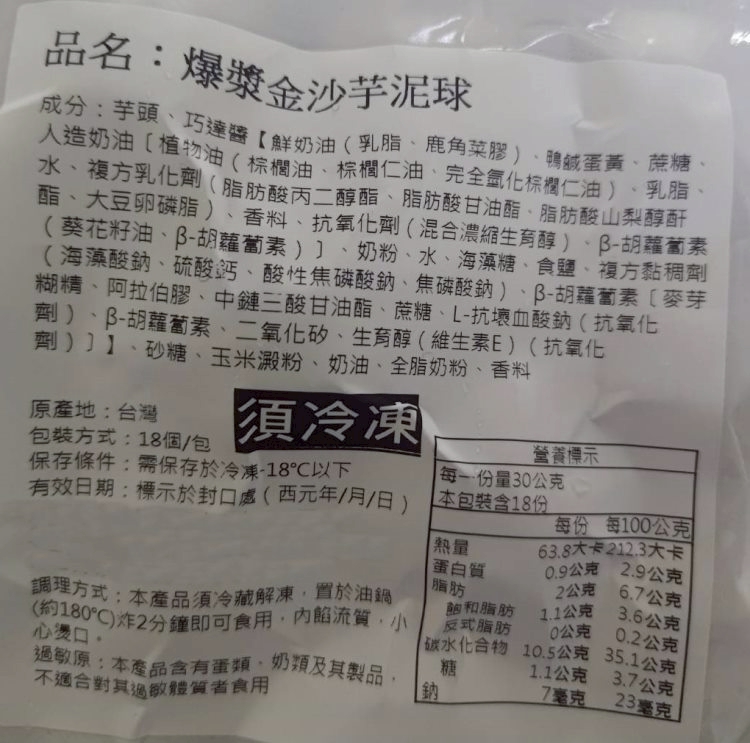 品名：爆漿金沙芋泥球
成分：芋頭、巧達醬【鮮奶油（乳脂、鹿角菜膠）、鴨鹹蛋黃、蔗糖、
人造奶油〔植物油（棕櫚油、棕櫚仁油、完全氫化棕櫚仁油）、乳脂、
水、複方乳化劑（脂肪酸丙二醇酯、脂肪酸甘油酯、脂肪酸山梨醇酐
酯、大豆卵磷脂）、香料、抗氧化劑（混合濃縮生育醇）、β-胡蘿蔔素
（葵花籽油、β-胡蘿蔔素）〕、奶粉、水、海藻糖、食鹽、複方黏稠劑
（海藻酸鈉、硫酸鈣、酸性焦磷酸鈉、焦磷酸鈉）、β-胡蘿蔔素〔麥芽
糊精、阿拉伯膠、中鏈三酸甘油酯、蔗糖、L-抗壞血酸鈉（抗氧化
劑）、β-胡蘿蔔素、二氧化矽、生育醇（維生素E）（抗氧化
劑）〕】、砂糖、玉米澱粉、奶油、全脂奶粉、香料
原產地：台灣
包裝方式：18個/包
須冷凍
保存條件：需保存於冷凍-18℃以下
有效日期：標示於封口處（西元年/月/日）
調理方式：本產品須冷藏解凍，置於油鍋
(約180℃)炸2分鐘即可食用，內餡流質，小
心燙口。
過敏原：本產品含有蛋類、奶類及其製品，
不適合對其過敏體質者食用
營養標示
每一份量30公克
本包裝含18份
每份 每100公克
熱量 63.8大卡 212.3大卡
蛋白質 0.9公克 2.9公克
脂肪 2公克 6.7公克
飽和脂肪 1.1公克 3.6公克
反式脂肪 0公克 0.2公克
碳水化合物 10.5公克 35.1公克
糖 1.1公克 3.7公克
鈉 7毫克 23毫克